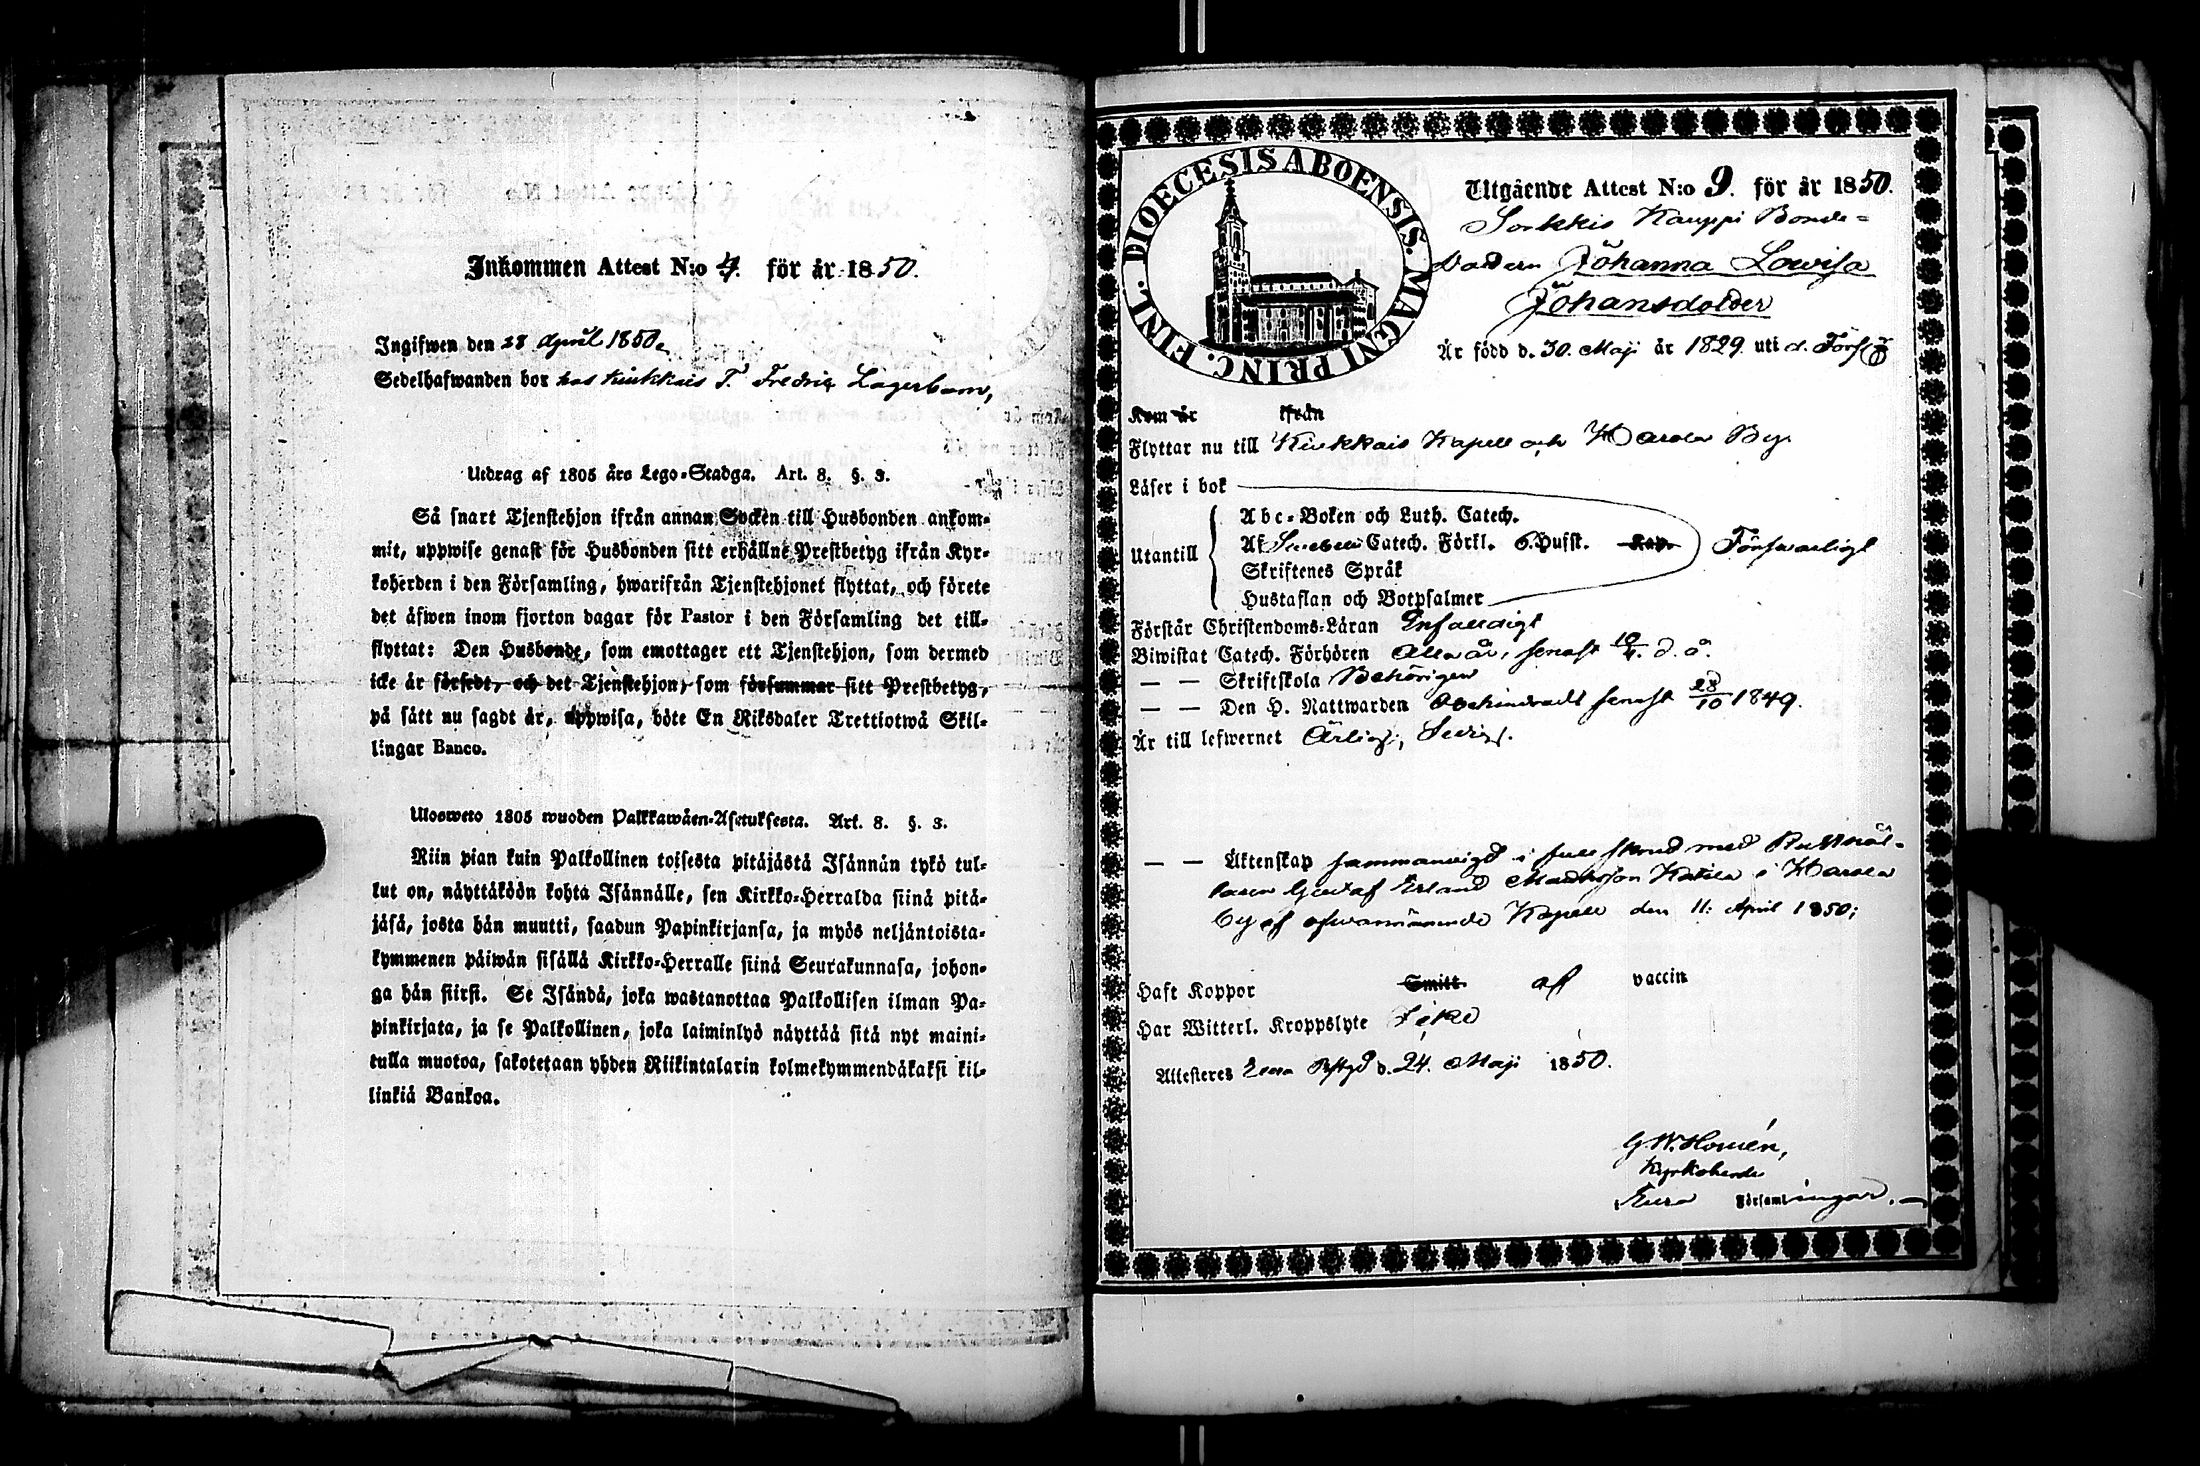 Inkommen Attest N:o 4. för år 1850.
Ingifwen den 28 April 1850.
Sedelhafwanden bor hos Kiukkais T. Fredric Lagerbom,
Utdrag af 1805 års Lego-Stadga. Art. 8. §. 3.
Så snart Tjenstehjon ifrån annan Socken till Husbonden ankom-
mit, uppwise genast för Husbonden sitt erhållne Prestbetyg ifrån Kyr-
koherden i den Församling, hwarifrån Tjenstehjonet flyttat, och förete
det äfwen inom fjorton dagar för Pastor i den Församling det till-
flyttat: Den Husbonde, som emottager ett Tjenstehjon, som dermed
icke är försedt, och det Tjenstehjon, som försummar sitt Prestbetyg,
på sätt nu sagdt är, uppwisa, böte En Riksdaler Trettiotwå Skil-
lingar Banco.
Ulosweto 1805 wuoden Palkkawäen-Asetuksesta. Art. 8. §. 3.
Niin pian kuin Palkollinen toisesta pitäjästä Isännän tykö tul-
lut on, näyttäköön kohta Isännälle, sen Kirkko-Herralda siinä pitä-
jäsä, josta hän muutti, saadun Papinkirjansa, ja myös neljäntoista-
kymmenen päiwän sisällä Kirkko-Herralle siinä Seurakunnasa, johon-
ga hän siirsi. Se Isändä, joka wastanottaa Palkollisen ilman Pa-
pinkirjata, ja se Palkollinen, joka laiminlyö näyttää sitä nyt maini-
tulla muotoa, sakotetaan yhden Riikintalarin kolmekymmendäkaksi kil-
linkiä Bankoa.
DIOECESIS ABOENSIS. MAGNI PRINC. FINL.
Utgående Attest N:o 9. för år 1850.
Sorkkis Kauppi Bonde-
Dottern Johanna Lowisa
Johansdotter
Är född d. 30. Maji år 1829 uti d. Förs.
Kom år ifrån
Flyttar nu till Kiukkais Kapell och Harola By.
Läser i bok
Utantill
Abc-Boken och Luth. Catech.
Af Swebeli Catech. Förkl. o. Hufst. Kap.
Skriftenes Språk
Hustaflan och Botpsalmer
Försvarligt
Förstår Christendoms-Läran Enfaldigt
Biwistat Catech. Förhören Alla år, senast 10/4. d. å.
— — Skriftskola Behörigen
— — Den H. Nattwarden Obehindradt senast 28/10 1849.
Är till lefwernet Ärlig, Sedig.
— — Äktenskap sammanvigd i full stånd med Rusthål-
laren Gustaf Erland Mattsson Katila i Harola
by af ofvannämnde Kapell den 11: April 1850;
Haft Koppor Smitt af vaccin
Har Witterl. Kroppslyte Icke
Attesteres Eura Pstgd d. 24. Maji 1850.
G W. Homén,
Kyrkoherde
Eura Församlingar.